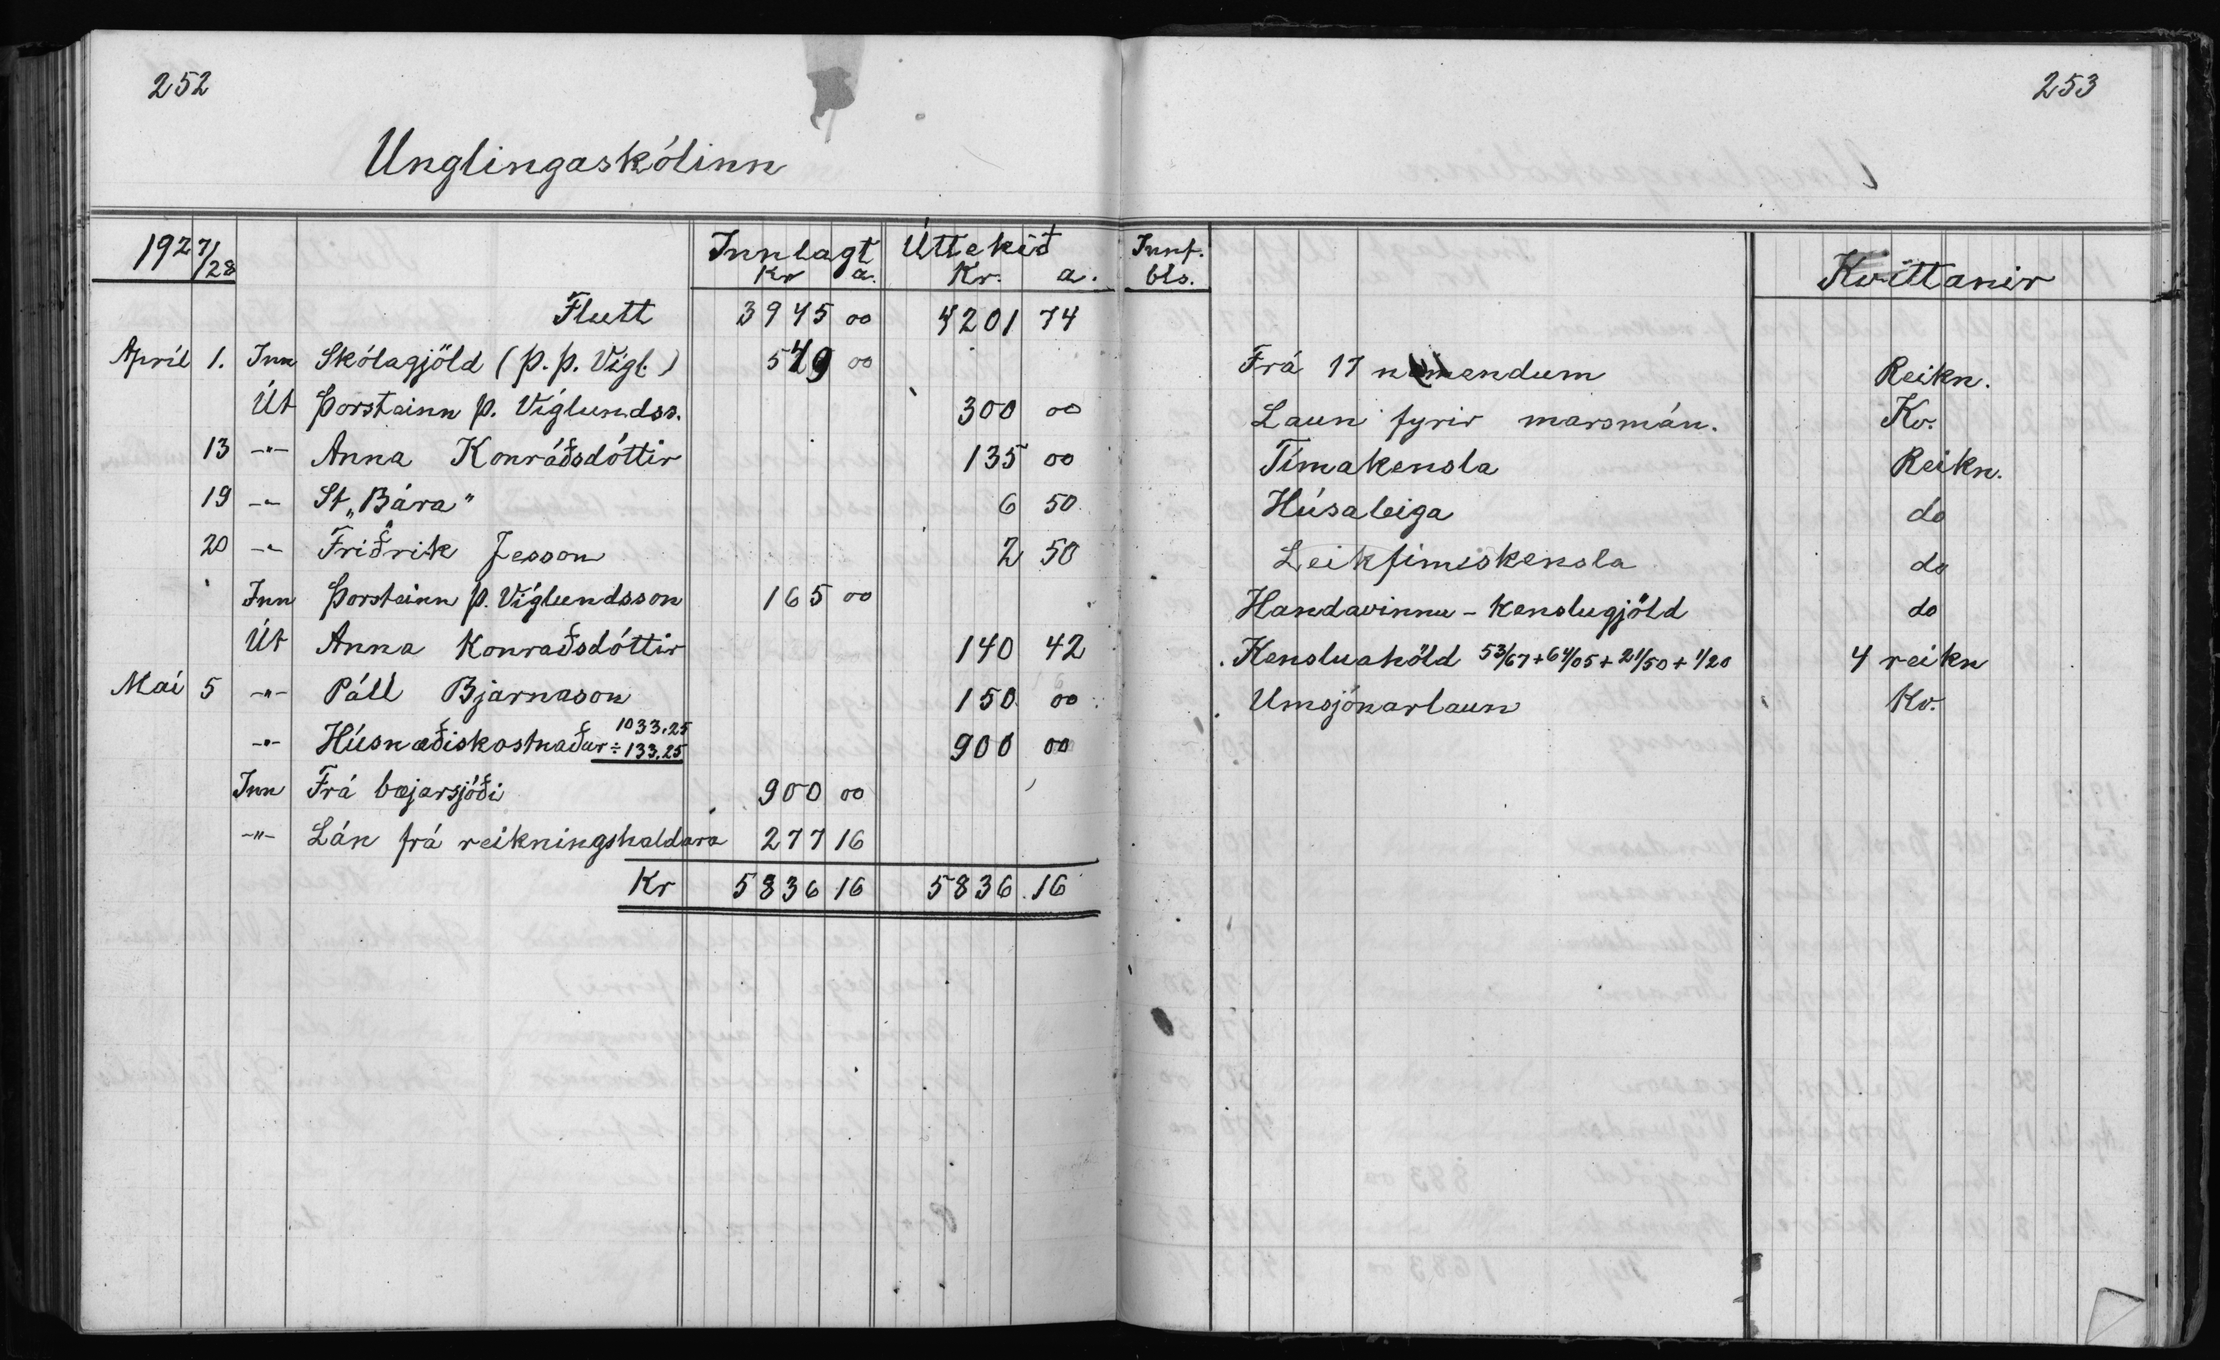 252
Unglingaskólinn
192 7/28 Innlagt Úttekið
Kr a. Kr. a.
Flutt 3945 00 4201 74
Apríl 1. Inn Skólagjöld (Þ. Þ. Vígl.) 549 00
Út Þorsteinn Þ. Víglundss. 300 00
13 -"- Anna Konráðsdóttir 135 00
19 -"- St. „Bára" 6 50
20 -"- Friðrik Jesson 2 50
Inn Þorsteinn Þ. Víglundsson 165 00
Út Anna Konraðsdóttir 140 42
Maí 5 -"- Páll Bjarnason 150 00
-"- Húsnæðiskostnaður 1033.25 ÷ 133.25 900 00
Inn Frá bæjarsjóði 900 00
-"- Lán frá reikningshaldara 277 16
Kr 5836 16 5836 16
253
Innf. bls. Kvittanir
Frá 17 nemendum Reikn.
Laun fyrir marsmán. Kv.
Tímakensla Reikn.
Húsaleiga do
Leikfimiskensla do
Handavinnu-kenslugjöld do
Kensluahöld 53/67 + 64/05 + 21/50 + 1/20 4 reikn
Umsjónarlaun Kv.